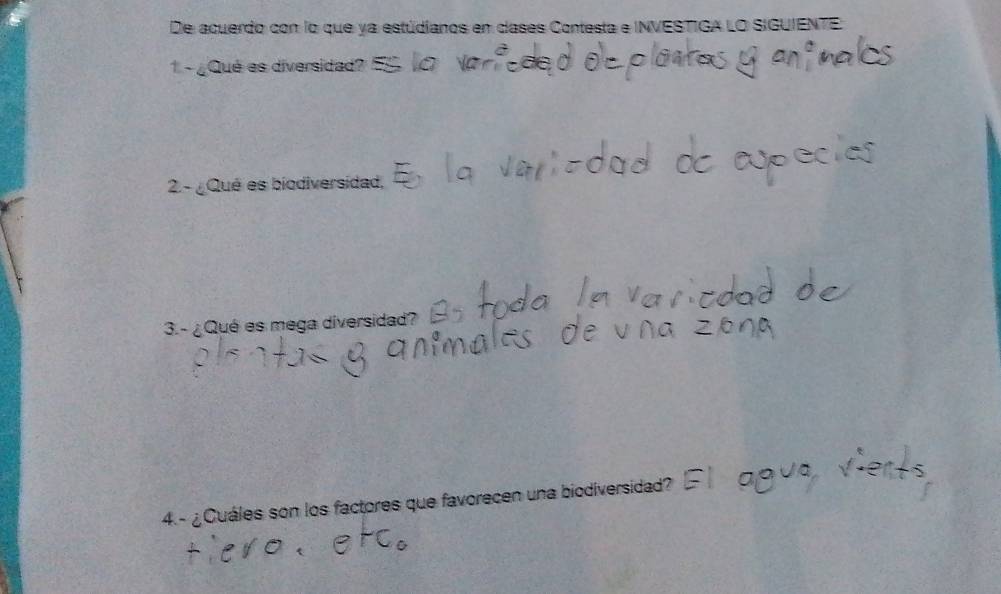 De acuerdo con lo que ya estúdianos en clases Contesta e INVESTIGA LO SIGUIENTE:
1.- ¿Qué es diversidad? Es la variedad de plantas y animales
2.- ¿Qué es biodiversidad. Es la variedad de especies
3.- ¿Qué es mega diversidad? Es toda la variedad de
plantas y animales de una zona
4.- ¿Cuáles son los factores que favorecen una biodiversidad? El agua, viento,
tiera, etc.